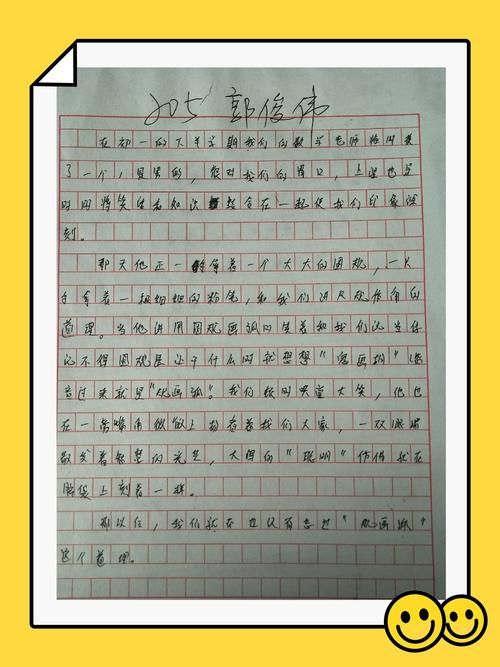 205 郭俊伟
在初一的下半学期我们的数学老师临时换
了一个,是男的,很对我们的胃口,上课也是
时用搞笑生与知识结合在一起使我们印象深
刻。
那天他正一拿着一个大大的圆规,一只
手拿着一根细细的粉笔,和我们讲尺规作角的
道理。当他讲用圆规画弧时笑着和我们说当你
记不得圆规是干什么时就想想“规画弧”
音过来就是“规画弧”。我们顿时哄堂大笑,他也
在一旁嘴角微微上扬看着我们大家,一双眼睛
散发着智慧的光芒,大写的“聪明”仿佛就在
脸上刻着一样。
那以后,我们就再也没有忘过“规画弧”
这个道理。